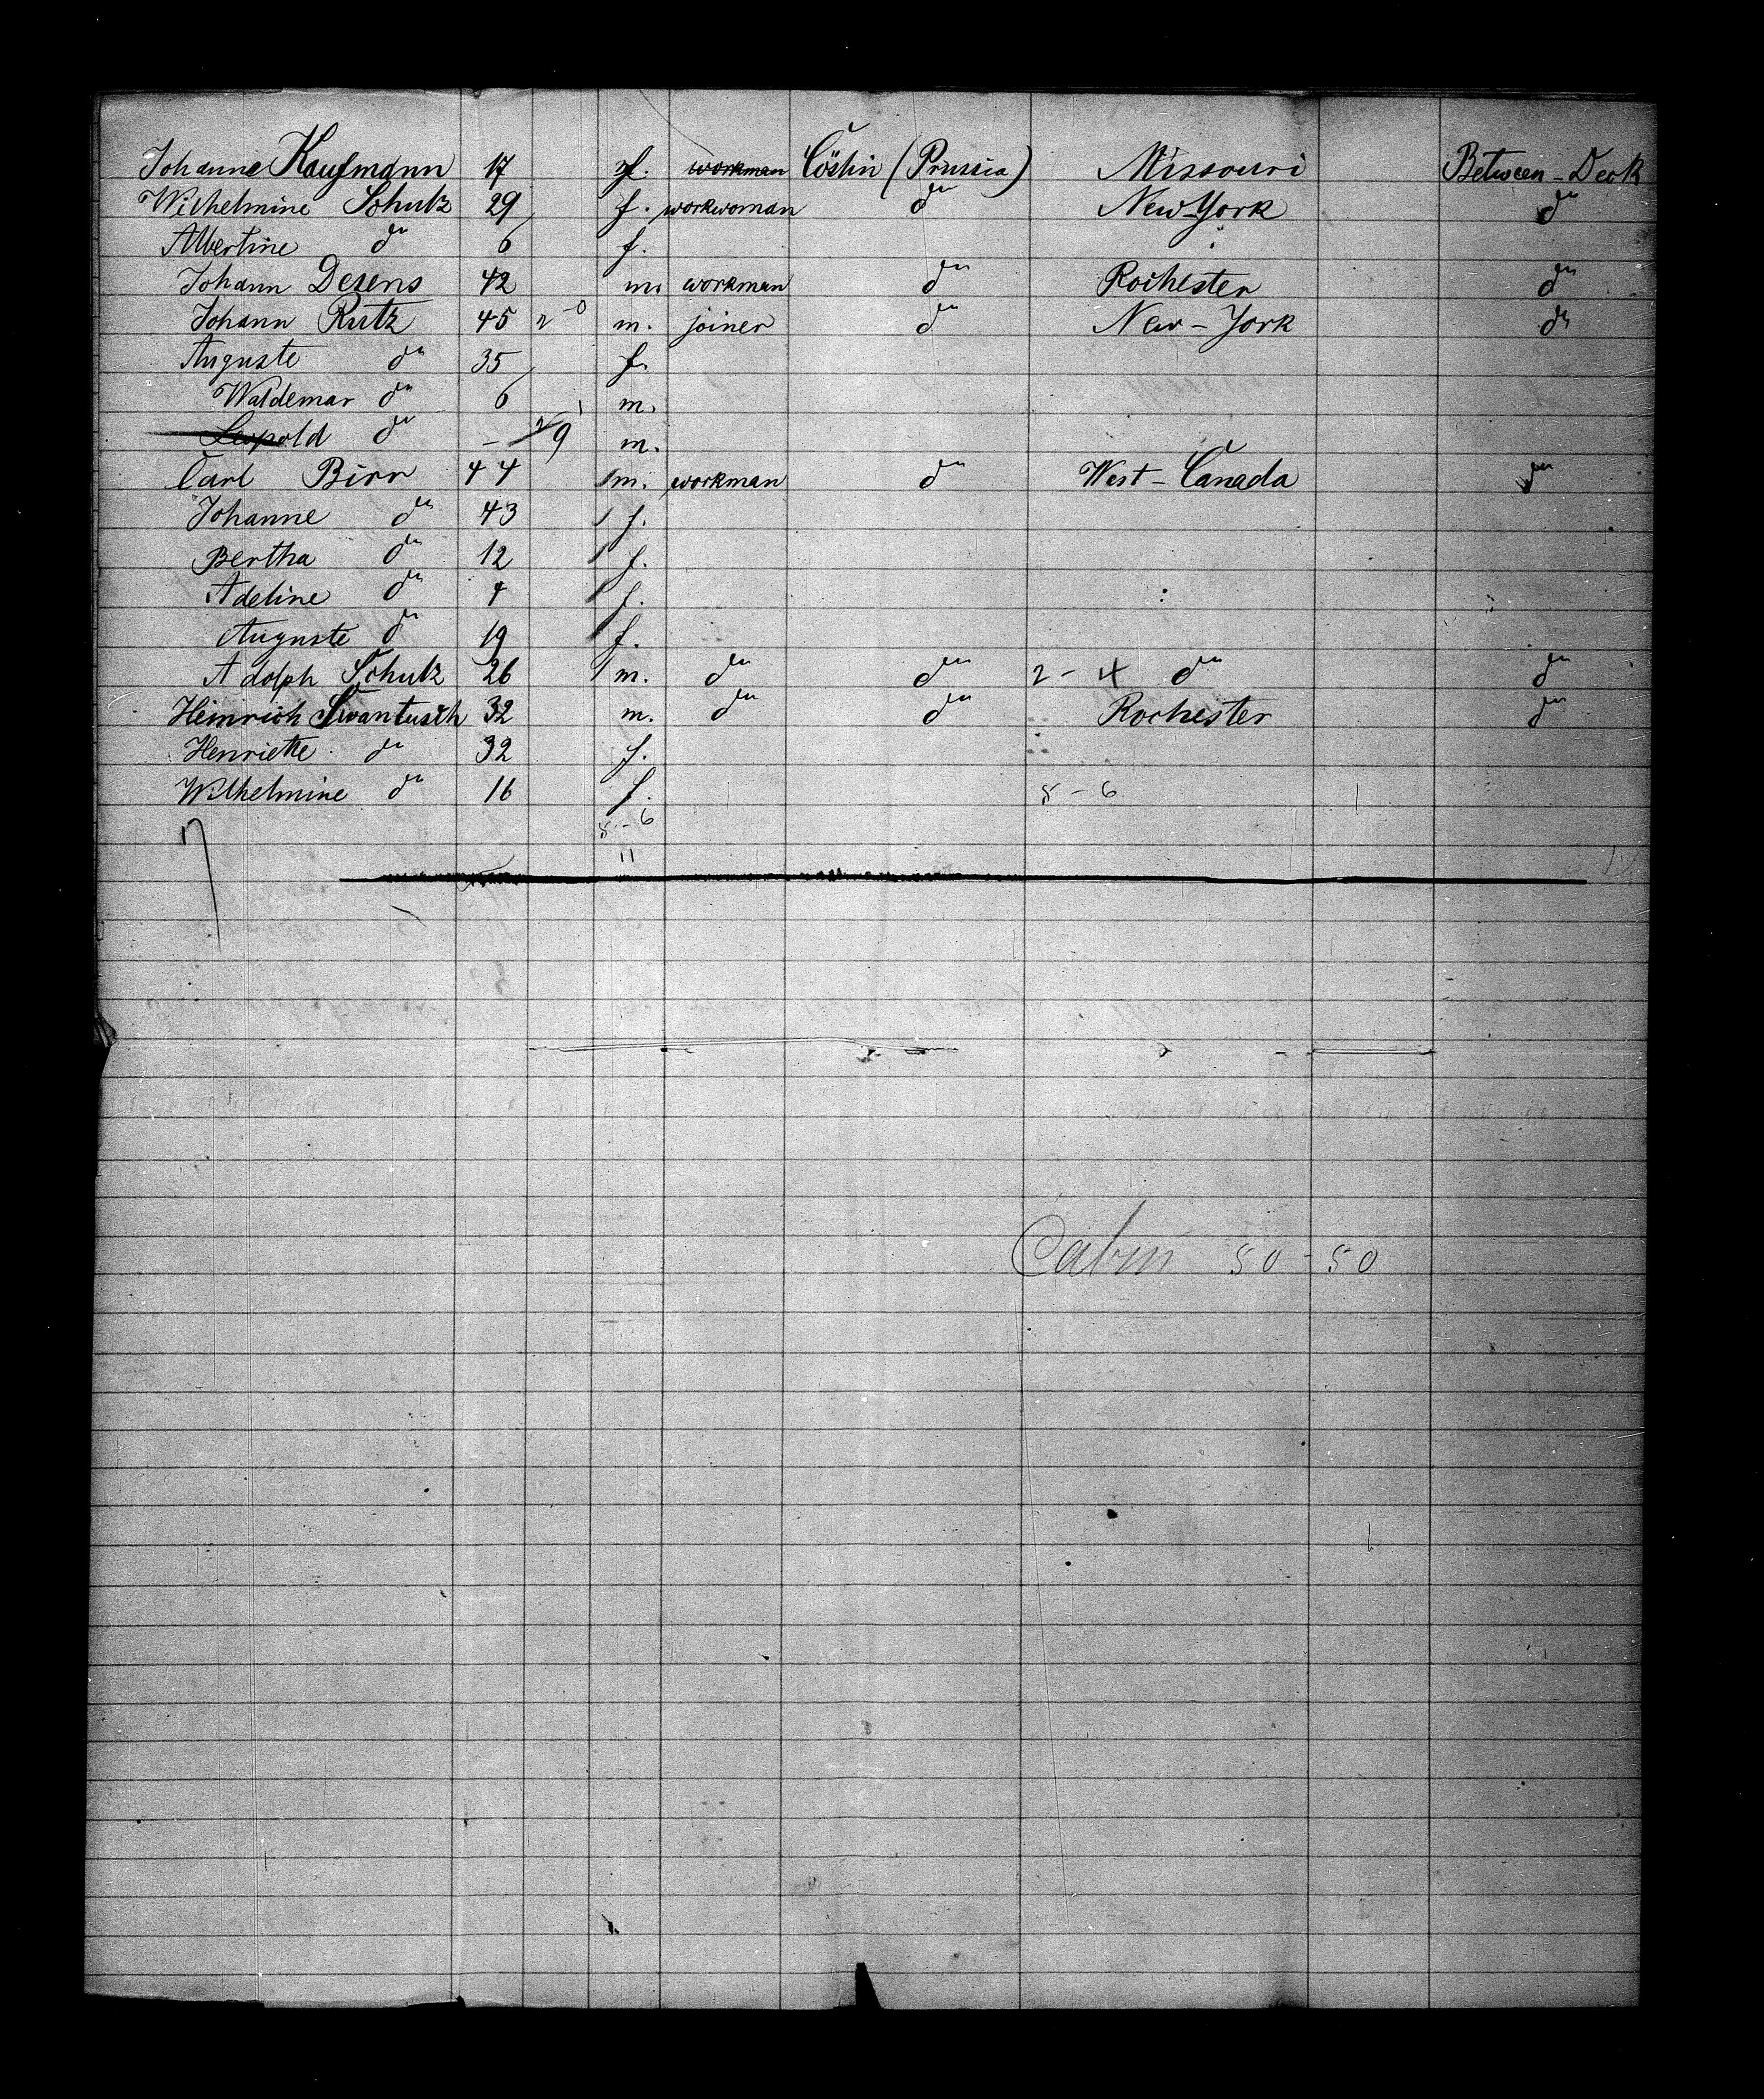 Johanne Kaufmann 17 f. workman Cöslin (Prussia) Missouri Between-Deck
Wilhelmine Schulz 29 f. workwoman do New-York do
Albertine do 6 f.
Johann Desens 42 m. workman do Rochester do
Johann Rutz 45 2-0 m. joiner do New-York do
Auguste do 35 f.
Waldemar do 6 m.
Leopold do - 9 m.
Carl Birr 44 m. workman do West-Canada do
Johanne do 43 f.
Bertha do 12 f.
Adeline do f.
Auguste do 19 f.
Adolph Schulz 26 m. do do 2-4 do do
Heinrich Swantusch 32 m. do do Rochester do
Henriette do 32 f.
Wilhelmine do 16 f. 5-6
5-6
11
Cabin 50-50